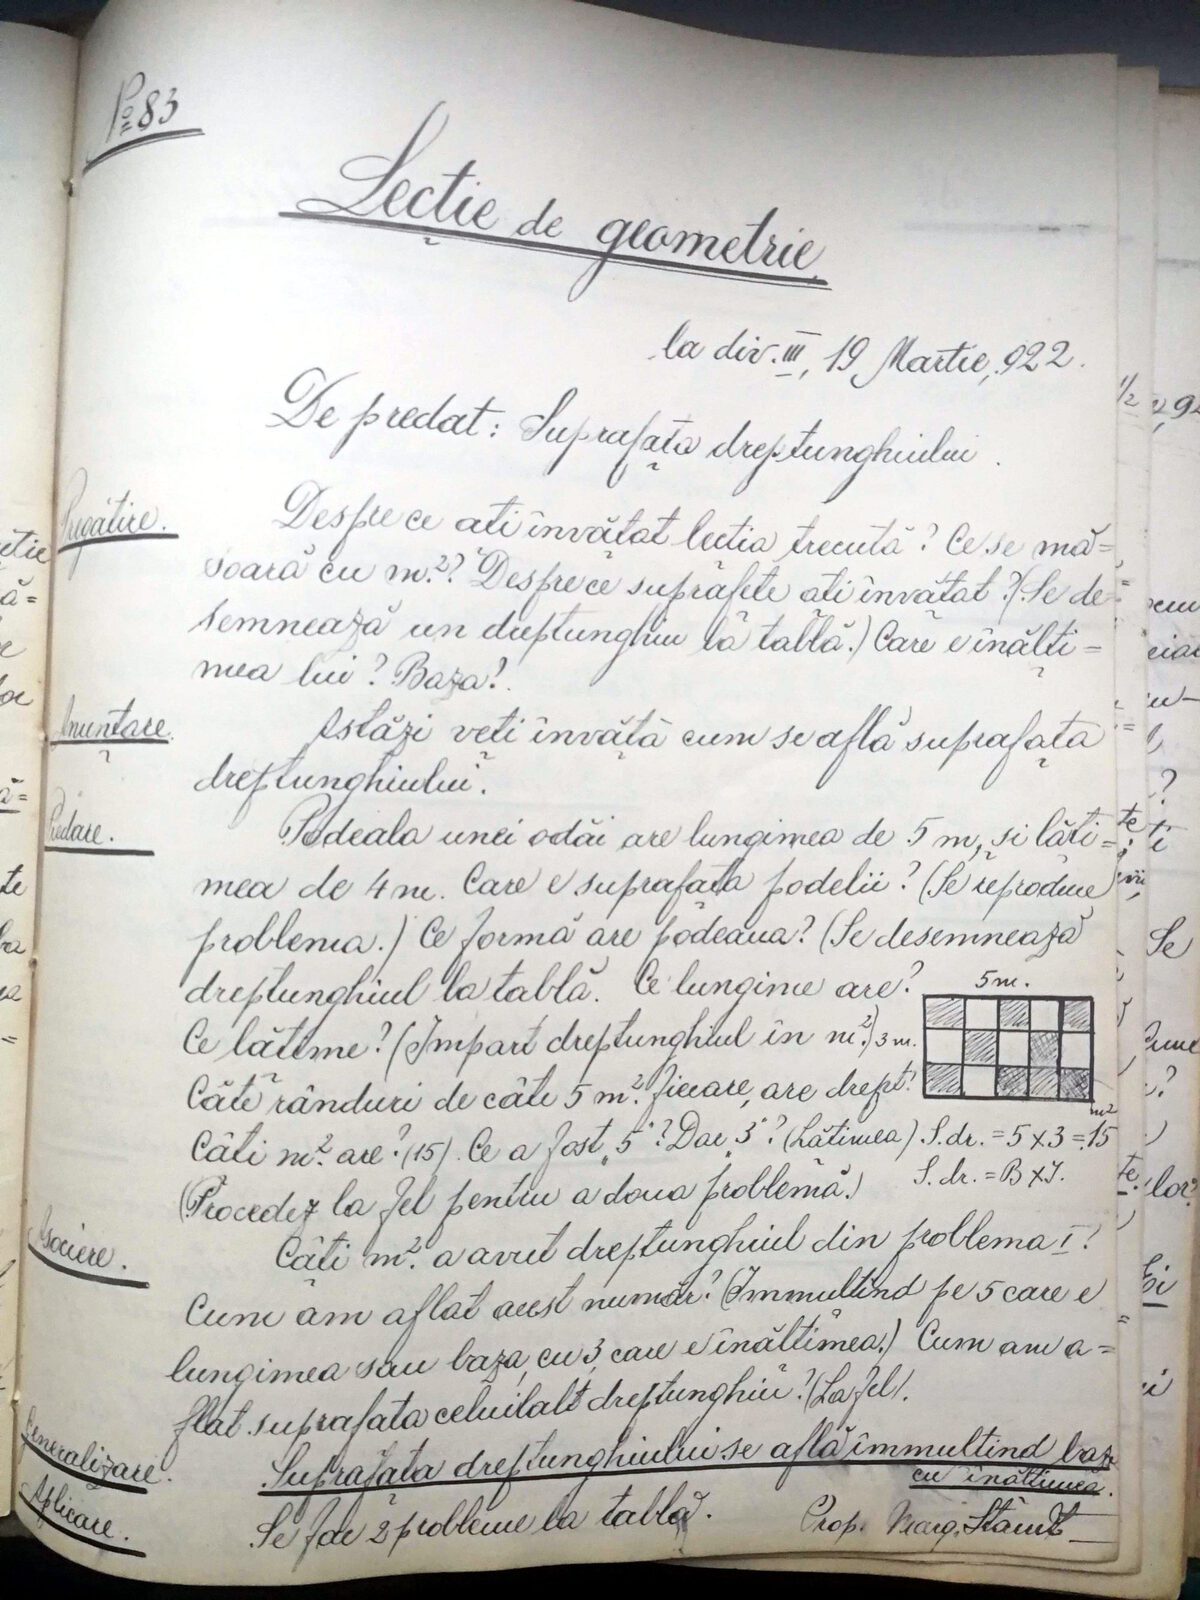 No 83
Lecție de geometrie.
la div. III, 19 Martie, 922.
De predat: Suprafața dreptunghiului.
Pregătire. Despre ce ați învățat lecția trecută? Ce se mă=
soară cu m²? Despre ce suprafețe ați învățat? (Se de
semnează un dreptunghiu la tablă.) Care e înălți=
mea lui? Baza?
Anunțare. Astăzi veți învăță cum se află suprafața
dreptunghiului.
Predare. Podeala unei odăi are lungimea de 5 m, și lăți=
mea de 4 m. Care e suprafața podelii? (Se reproduce
problema.) Ce formă are podeaua? (Se desemnează
dreptunghiul la tablă. Ce lungime are?
5 m.
Ce lățime? (Împart dreptunghiul în m².)
3 m.
Câte rânduri de câte 5 m². fiecare, are drept?
m²
Câți m². are? (15). Ce a fost „5"? Dar „3"? (Lățimea) S. dr. = 5 x 3 = 15
(Procedez la fel pentru a doua problemă.) S. dr. = B x I.
Asociere. Câți m². a avut dreptunghiul din problema I?
Cum am aflat acest număr? (Înmulțind pe 5 care e
lungimea sau baza, cu 3, care e înălțimea.) Cum am a=
flat suprafața celuilalt dreptunghiu? (La fel).
Generalizare. Suprafața dreptunghiului se află înmulțind baza
cu înălțimea.
Aplicare. Se fac 2 probleme la tablă. Prop. Marg.